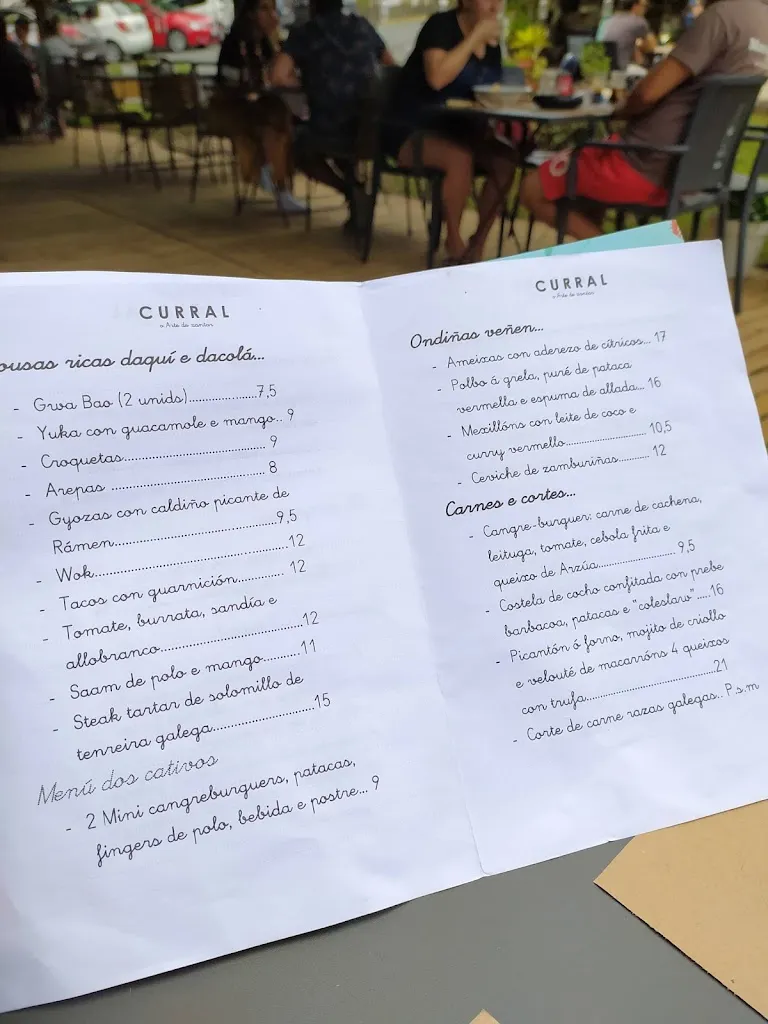 CURRAL
a Arte de xantar
ousas ricas daquí e dacolá...
- Gwa Bao (2 unids)....................7,5
- Yuka con guacamole e mango.. 9
- Croquetas................................... 9
- Arepas ...................................... 8
- Gyozas con caldiño picante de
Rámen........................................9,5
- Wok.......................................................12
- Tacos con guarnición............ 12
- Tomate, burrata, sandía e
allobranco......................................12
- Saam de polo e mango..........11
- Steak tartar de solomillo de
tenreira galega.........................15
Menú dos cativos
- 2 Mini cangreburguers, patacas,
fingers de polo, bebida e postre... 9
CURRAL
a Arte de xantar
Ondiñas veñen...
- Ameixas con aderezo de cítricos... 17
- Polbo á grela, puré de pataca
vermella e espuma de allada... 16
- Mexillóns con leite de coco e
curry vermello...................... 10,5
- Ceviche de zamburiñas............ 12
Carnes e cortes...
- Cangre-burguer: carne de cachena,
leituga, tomate, cebola frita e
queixo de Arzúa...................... 9,5
- Costela de cocho confitada con prebe
barbacoa, patacas e "coleslaw".....16
- Picantón ó forno, mojito de criollo
e velouté de macarróns 4 queixos
con trufa.....................................21
- Corte de carne razas galegas.. P.s.m